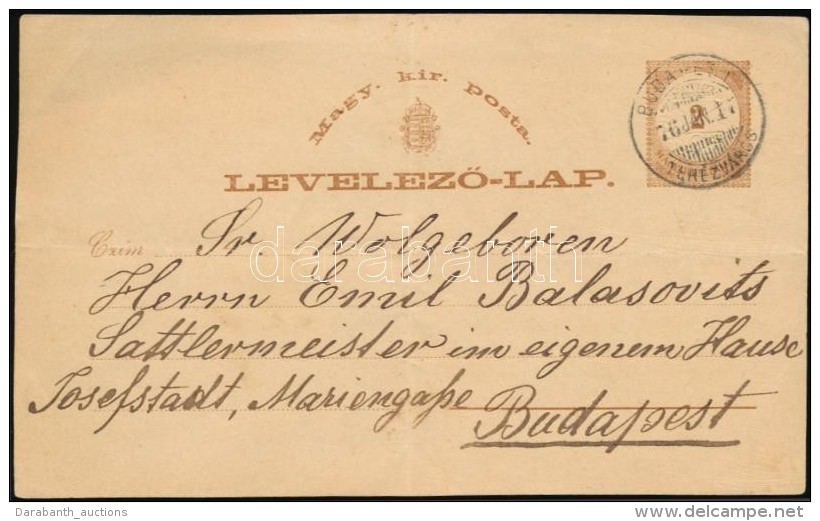 Magy. kir. posta.
BUDAPEST
2
76 JAN. 17
TERÉZVÁROS
LEVELEZŐ-LAP.
Czim Sr. Wolgeboren
darabanth
Herrn Emil Balasovits
Sattlermeister im eigenem Hause
Josefstadt, Mariengaße
Budapest
Darabanth_auctions
delcampe.net